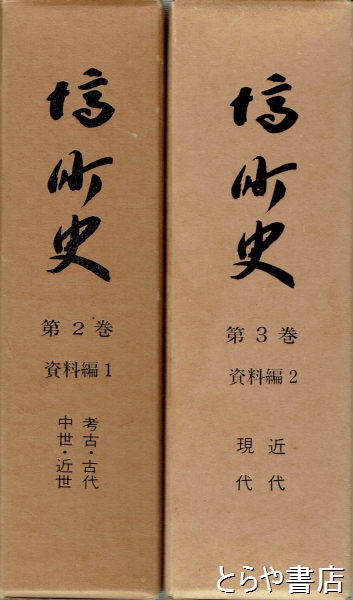 塙町史
第2巻
資料編1
考古・古代
中世・近世
塙町史
第3巻
資料編2
近代
現代
とらや書店